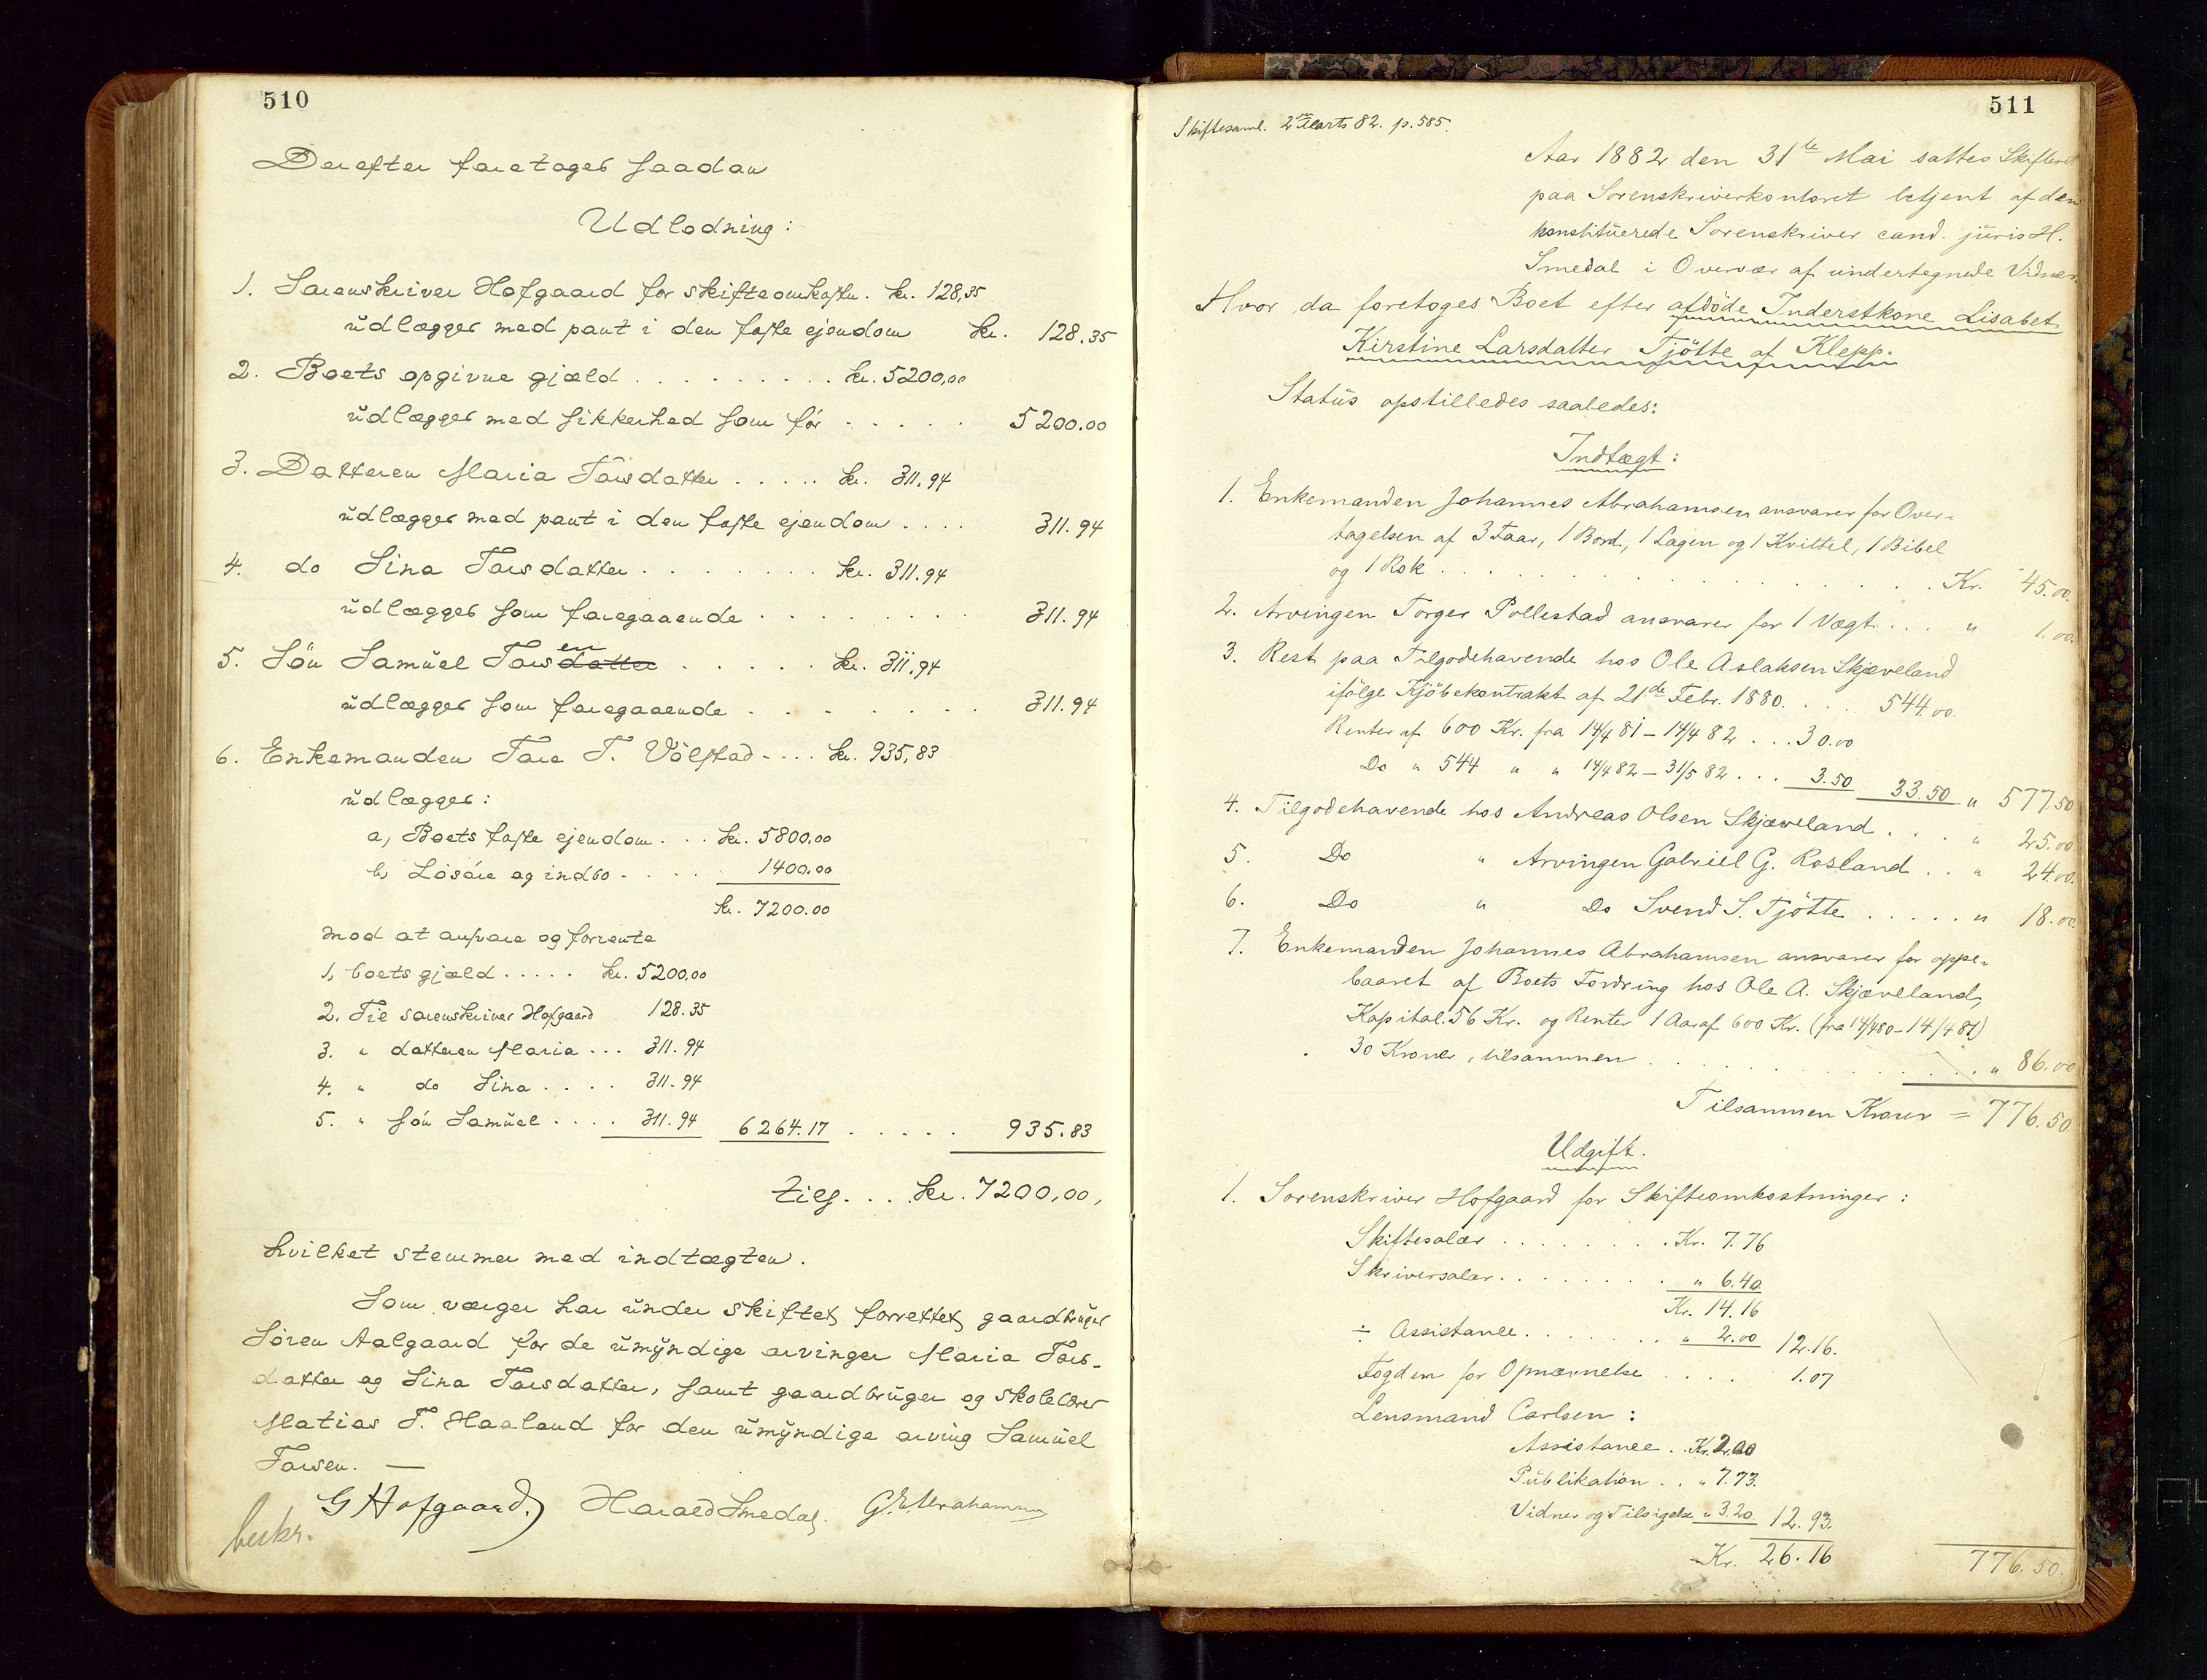 510
Derefter foretoges saadan
Udlodning:
1. Sorenskriver Hofgaard for skifteomkostn. kr. 128,35
udlægges med pant i den faste ejendom kr. 128.35
2. Boets opgivne gjæld . . . . . . . . . kr. 5200,00
udlægges med sikkerhed som før . . . . . 5200.00
3. Datteren Maria Torsdatter . . . . . kr. 311.94
udlægges med pant i den faste ejendom . . . . 311.94
4. do Sina Torsdatter . . . . . . . kr. 311.94
udlægges som foregaaende . . . . . . . . 311.94
5. Søn Samüel Torsdatter en . . . . . kr. 311.94
udlægges som foregaaende . . . . . . . . 311.94
6. Enkemanden Tore T. Vølstad . . . . kr. 935,83
udlægges:
a, Boets faste ejendom . . . kr. 5800.00
b, Løsøre og indbo . . . . . 1400.00
kr. 7200.00
mod at ansvare og forrente
1, boets gjæld . . . . . kr. 5200,00
2. Til sorenskriver Hofgaard 128.35
3. " datteren Maria . . . 311.94
4. " do Sina . . . . 311.94
5. " søn Samüel . . . . 311.94 6264.17 . . . . . 935.83
tils. . . . kr. 7200,00,
hvilket stemmer med indtægten.
Som værger har ünder skiftet forrettet gaardbrüger
Søren Aalgaard for de ümyndige arvinger Maria Tors-
datter og Sina Torsdatter, samt gaardbrüger og skolelærer
Matias T. Haaland for den ümyndige arving Samüel
Torsen. —
G Hofgaard. Harald Smedal. G. E. Abrahamsen
beskr.
511
Skiftesaml. 2den Marts 82. p. 585.
Aar 1882 den 31te Mai sattes Skifteret
paa Sorenskriverkontoret betjent af den
konstitüerede Sorenskriver cand. jüris H.
Smedal i Overvær af ündertegnede Vidner.
Hvor da foretoges Boet efter afdöde Inderstkone Lisabet
Kirstine Larsdatter Tjötte af Klepp.
Statüs opstilledes saaledes:
Indtægt:
1. Enkemanden Johannes Abrahamsen ansvarer for Over-
tagelsen af 3 Faar, 1 Bord, 1 Lagen og 1 Kvittel, 1 Bibel
og 1 Rok . . . . . . . . . . . . Kr. 45.00.
2. Arvingen Torger Pollestad ansvarer for 1 Vægt . . . " 1.00.
3. Rest paa Tilgodehavende hos Ole Aslaksen Skjæveland
ifölge Kjöbekontrakt af 21de Febr. 1880. . . . 544.00.
Renter af 600 Kr. fra 14/4 81 – 14/4 82 . . . 30.00
Do " 544 " " 14/4 82 – 31/5 82 . . . 3.50 33.50 " 577.50
4. Tilgodehavende hos Andreas Olsen Skjæveland . . . " 25.00
5. Do " Arvingen Gabriel G. Rosland . . " 24.00.
6. Do " Do Svend S. Tjötte . . . . . " 18.00.
7. Enkemanden Johannes Abrahamsen ansvarer for oppe-
baaret af Boets Fordring hos Ole A. Skjæveland,
Kapital 56 Kr. og Renter 1 Aar af 600 Kr. (fra 14/4 80 – 14/4 81)
30 Kroner, tilsammen . . . . . . . . . . . " 86.00
Tilsammen Kroner = 776.50
Udgift.
1. Sorenskriver Hofgaard for Skifteomkostninger:
Skiftesalær . . . . . . . Kr. 7.76
Skriversalær . . . . . . . " 6.40
Kr. 14.16
÷ Assistance . . . . . . . " 2.00 12.16.
Fogden for Opnævnelse . . . . 1.07
Lensmand Carlsen:
Assistance . . Kr. 2.00
Püblikation . . " 7.73.
Vidner og Tilsigelse " 3.20. 12.93.
Kr. 26.16 776.50.